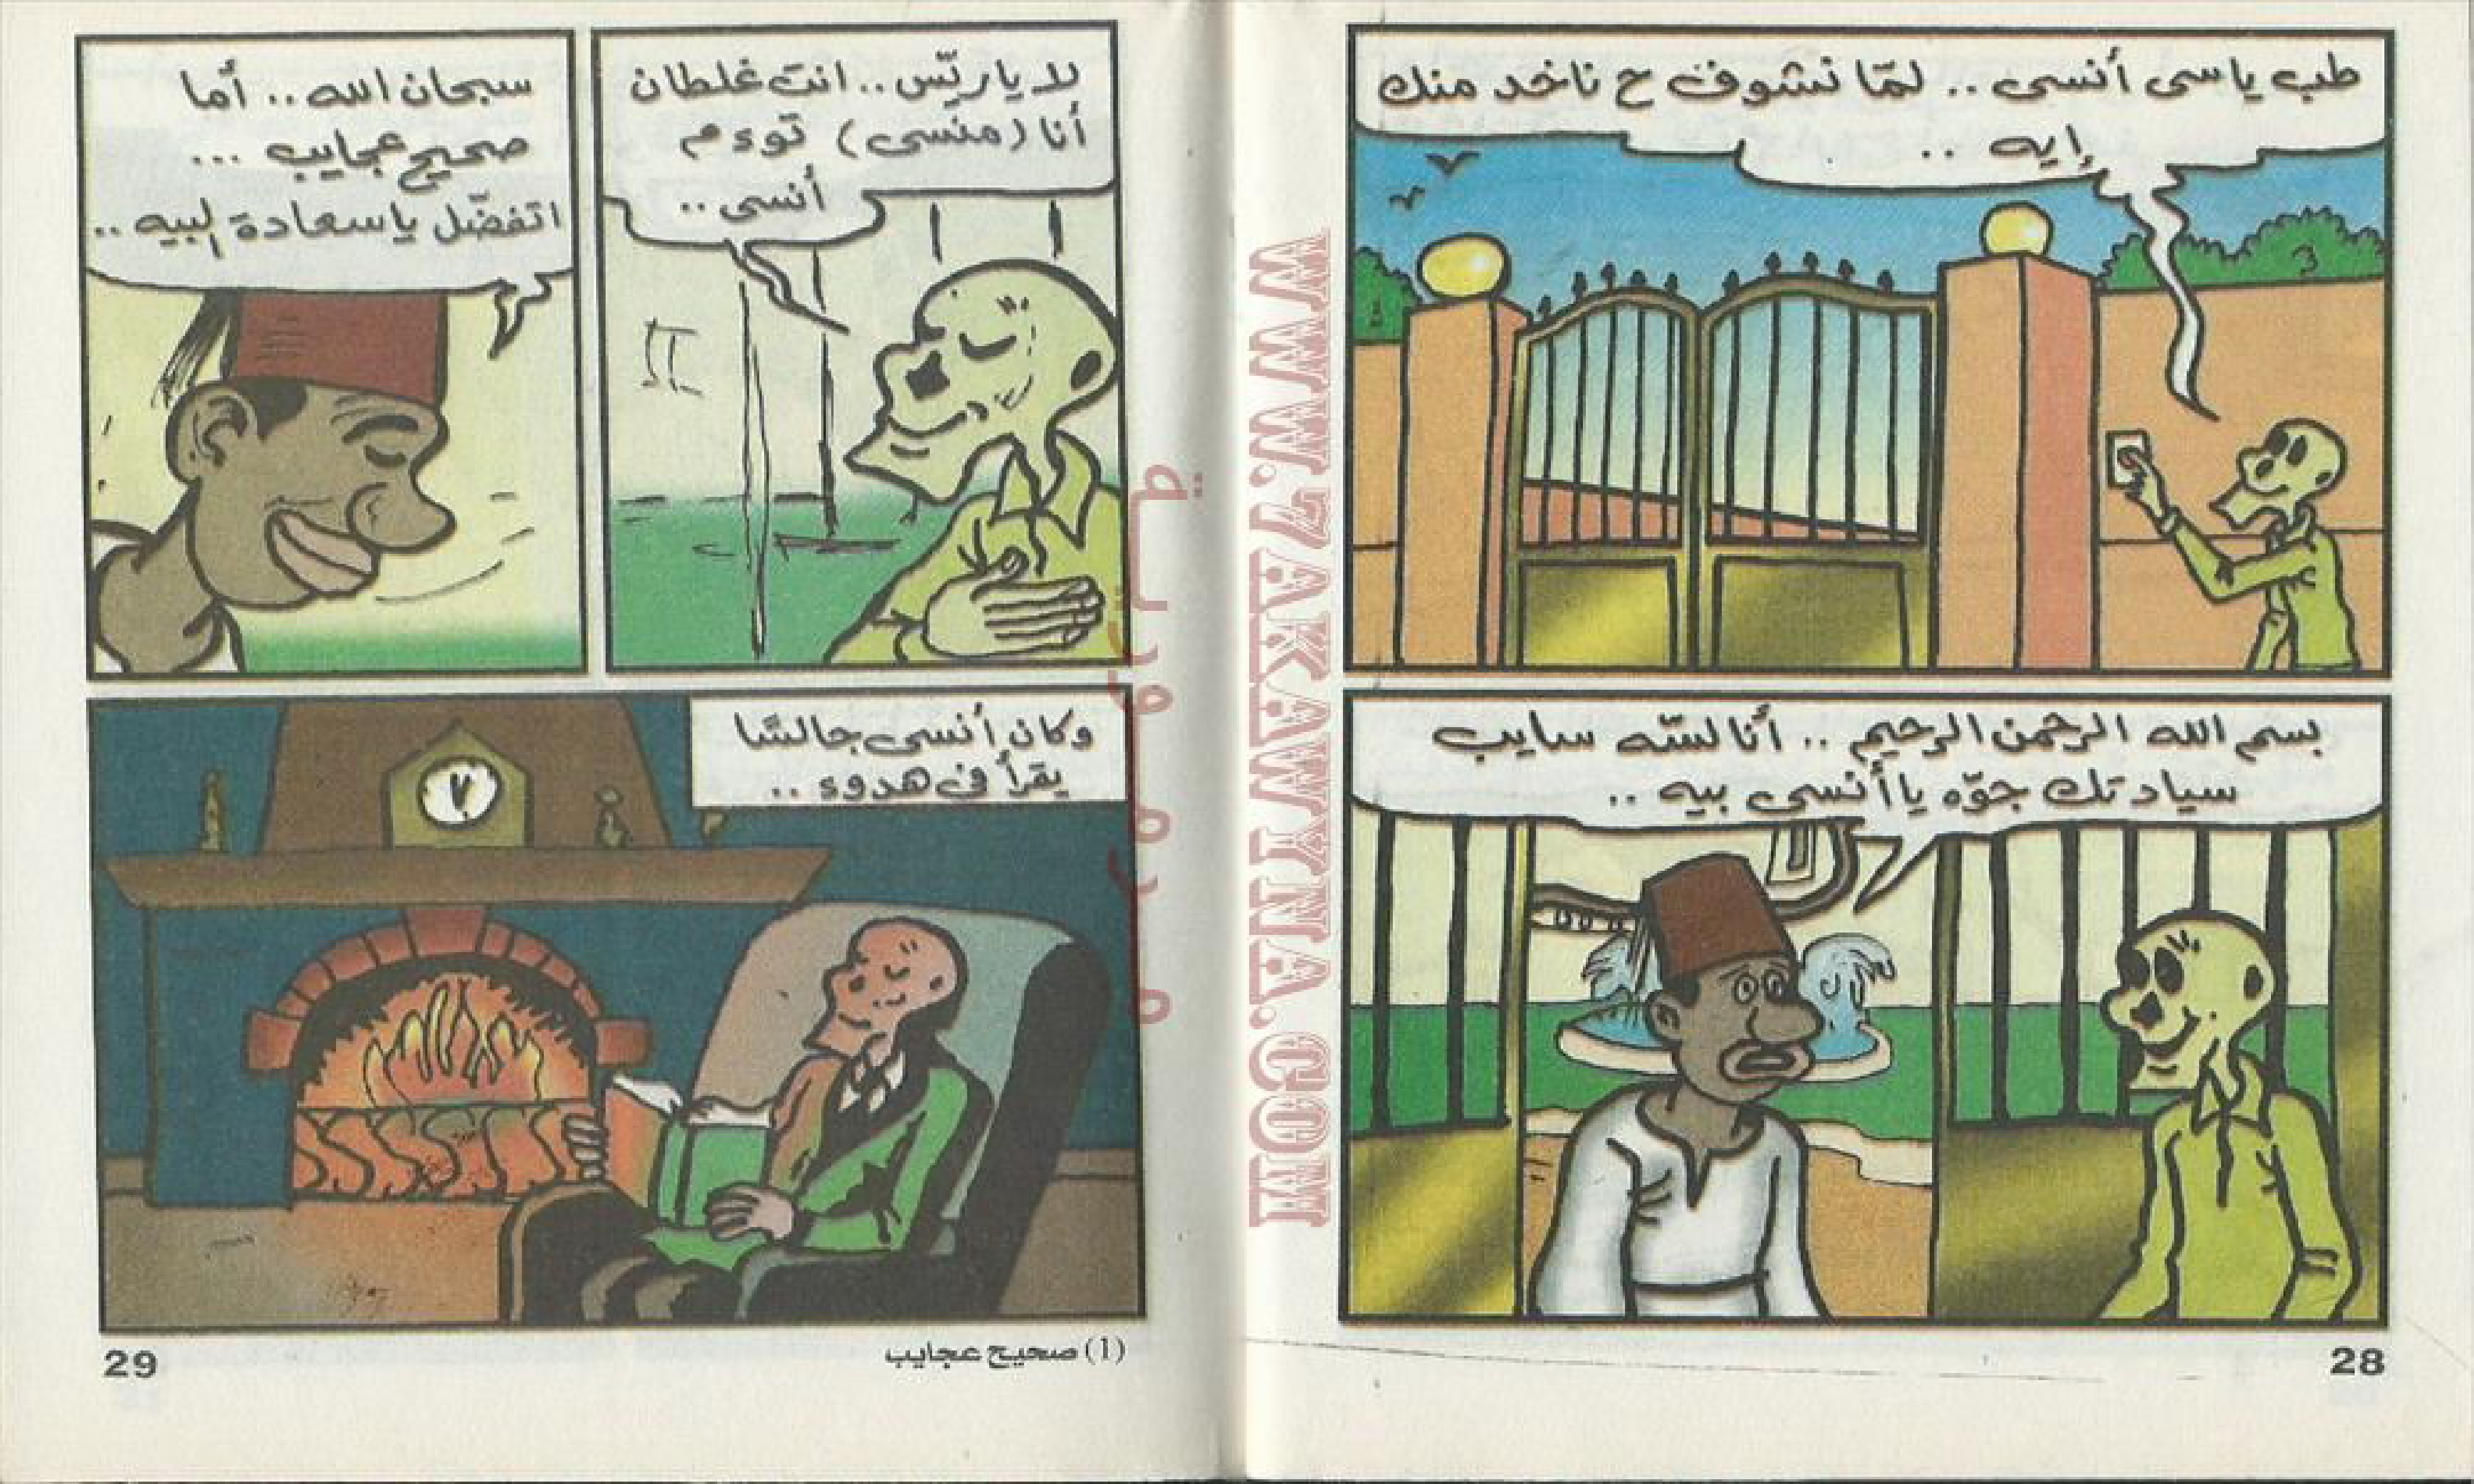 طب ياسى أنسى .. لمّا نشوف ح ناخد منك
إيه ..
بسم الله الرحمن الرحيم .. أنا لسّه سايب
سيادتك جوّه يا أنسى بيه ..
28
لا ياريّس .. انت غلطان
أنا (منسى) توءم
أنسى ..
سبحان الله .. أما
صحيح عجايب ...
اتفضّل ياسعادة البيه ..
وكان أنسى جالسًا
يقرأ فى هدوء ..
(1) صحيح عجايب
29